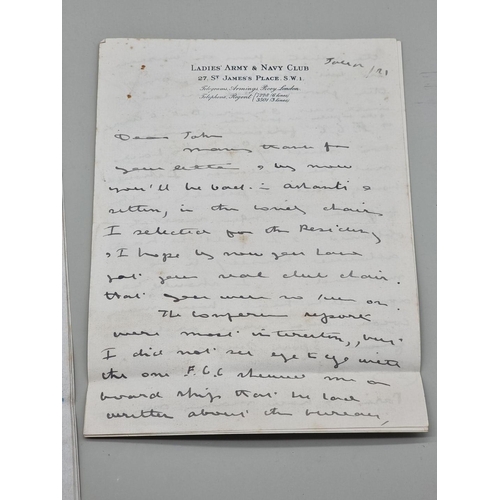 LADIES' ARMY & NAVY CLUB
27, ST JAMES'S PLACE, S.W.1.
Telegrams,
Telephone Regent
Dear John
Many thanks for
your letter & by now
you'll be back in Ashanti &
sitting in the lovely chairs
I selected for the Residency
& I hope by now you have
got your real club chair
that you were so keen on.
The Conference reports
were most interesting, but
I did not see eye to eye with
the one F.G.G showed me on
board ship that he had
written about the bureau,